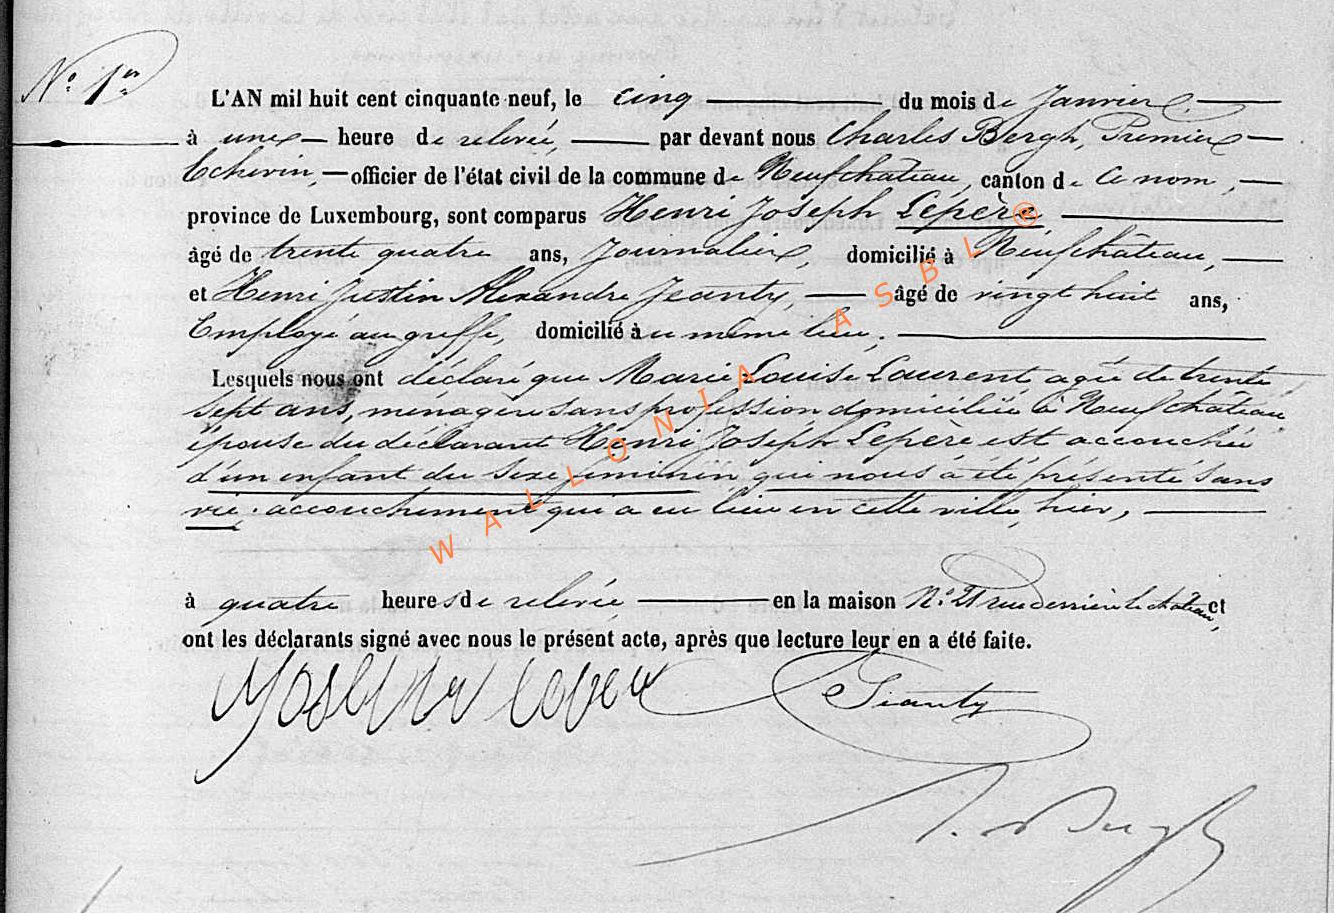 N° 1er
L'AN mil huit cent cinquante neuf, le cinq du mois de Janvier
à une heure de relevée, par devant nous Charles Bergh, Premier
Echevin, officier de l'état civil de la commune de Neufchateau, canton de ce nom,
province de Luxembourg, sont comparus Henri Joseph Lepère
âgé de trente quatre ans, Journalier, domicilié à Neufchâteau,
et Henri Justin Alexandre Jeanty, âgé de vingt huit ans,
Employé au greffe, domicilié au même lieu,
Lesquels nous ont déclaré que Marie Louise Laurent agée de trente
sept ans, ménagère sans profession domiciliée à Neufchâteau
épouse du déclarant Henri Joseph Lepère est accouchée
d'un enfant du sexe féminin qui nous a été présenté sans
vie. accouchement qui a eu lieu en cette ville, hier,
à quatre heures de relevée en la maison N° rue derrière le château, et
ont les déclarants signé avec nous le présent acte, après que lecture leur en a été faite.
Jeanty
Bergh
WALLONIA ASBL ®